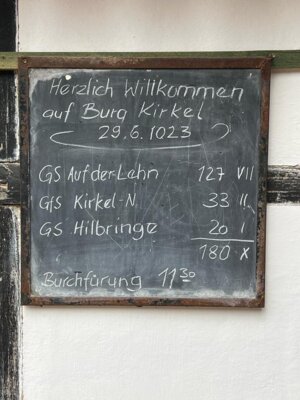 Herzlich Willkommen
auf Burg Kirkel
29.6.1023
GS Auf der Lehn 127 VII
GfS Kirkel-N. 33 II
GS Hilbringe 20 I
180 X
Burchfürung 11 30